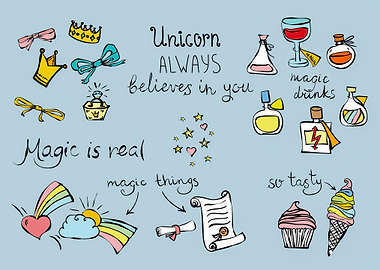 Unicorn
ALWAYS
believes in you
magic
drinks
Magic is real
magic things
so tasty